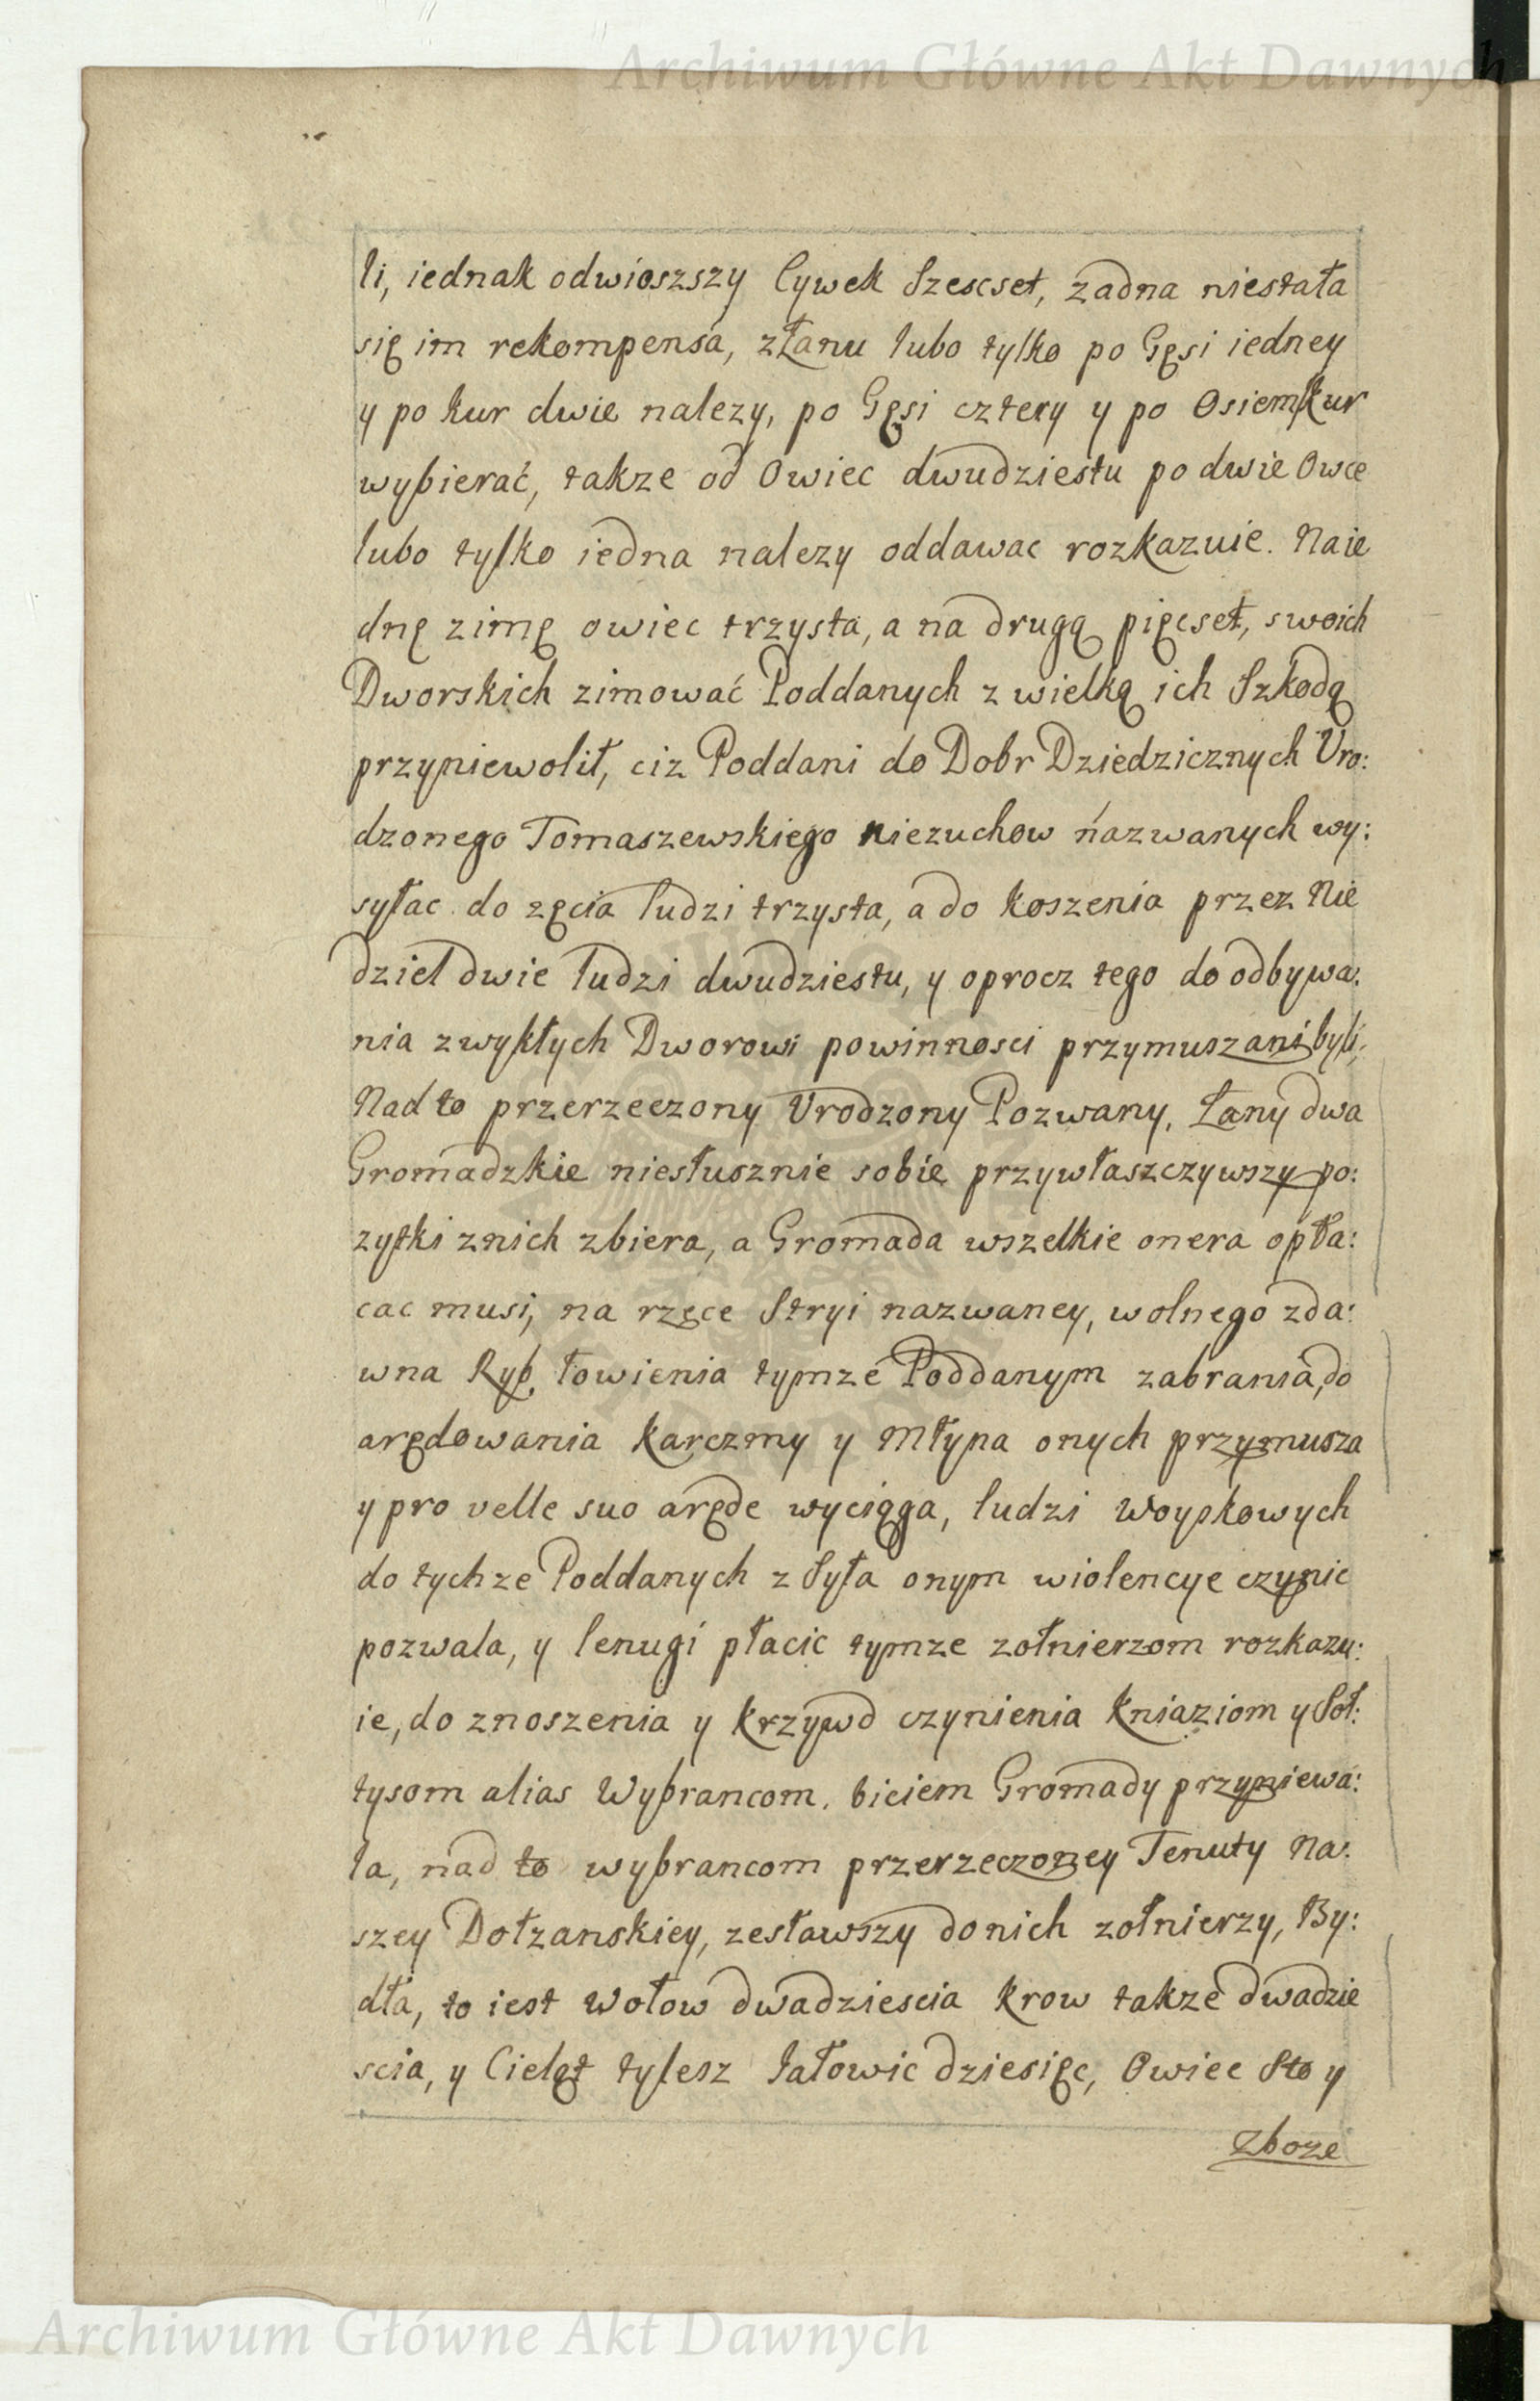 Archiwum Główne Akt Dawnych
li, iednak odwiozszy Cywek Szescset, zadna niestała
się im rekompensa, złanu lubo tylko po Gęsi iedney
y po kur dwie nalezy, po Gęsi cztery y po Osiem kur
wybierać, takze od Owiec dwudziestu po dwie Owce
lubo tylko iedna nalezy oddawac rozkazuie. Naie
dnę zimę owiec trzysta, a na drugą pięcset, swoich
Dworskich zimować Poddanych z wielką ich Szkodą
przyniewolił, ciz Poddani do Dobr Dziedzicznych Vro:
dzonego Tomaszewskiego Niezuchow nazwanych wy:
syłac do zęcia ludzi trzysta, a do koszenia przez Nie
dziel dwie ludzi dwudziestu, y oprocz tego do odbywa:
nia zwykłych Dworowi powinnosci przymuszani byli,
Nad to przerzeczony Vrodzony Pozwany, Łany dwa
Gromadzkie niesłusznie sobie przywłaszczywszy po:
zytki znich zbiera, a Gromada wszelkie onera opła:
cac musi, na rzęce Stryi nazwaney, wolnego zda:
wna Ryb łowienia tymze Poddanym zabrania, do
arędowania karczmy y Młyna onych przymusza
y pro velle suo arędę wyciąga, ludzi Woyskowych
do tychze Poddanych z Syła onym wiolencye czynic
pozwala, y lenugi płacic tymze zołnierzom rozkazu:
ie, do znoszenia y krzywd czynienia Kniaziom y Soł:
tysom alias Wybrancom, biciem Gromady przyniewa:
la, nad to wybrancom przerzeczoney Tenuty Na:
szey Dołzanskiey, zesławszy do nich zołnierzy, By:
dła, to iest Wołow dwadziescia Krow takze dwadzie
scia, y Cieląt tylesz Jałowic dziesięc, Owiec Sto y
Zboze
Archiwum Główne Akt Dawnych